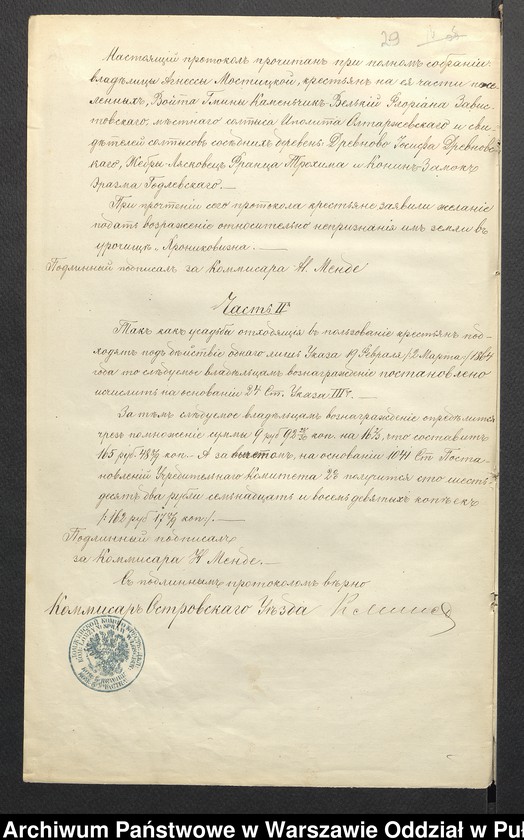 29
Настоящий протоколъ прочитанъ при полномъ собраніи
владѣлицы Агнессы Мостицкой, крестьянъ на ея части посе-
ленныхъ, Войта Гмины Каменчикъ Велькій Флоріана Завис-
товскаго, мѣстнаго солтыса Иполита Олтаржевскаго и сви-
дѣтелей солтысовъ сосѣднихъ деревень Древново Іосифа Древновс-
каго, Жебри-Лясковецъ Франца Трохима и Конинъ-Замокъ
Эразма Годлевскаго.—
При прочтеніи сего протокола крестьяне заявили желаніе
подать возраженіе относительно непризнанія имъ земли въ
урочищѣ „Хрониковизна.—
Подлинный подписалъ за Коммисара Н. Менде
Часть II
Такъ какъ усадьбы отходящія въ пользованіе крестьянъ под-
ходятъ подъ дѣйствіе однаго лишь Указа 19 Февраля /2 Марта/ 1864
года то слѣдуемое владѣльцамъ вознагражденіе постановлено
исчислить на основаніи 27 Ст. Указа III.—
За тѣмъ слѣдуемое владѣльцамъ вознагражденіе опредѣлится
чрезъ помноженіе суммы 9 руб 92 коп. на 16⅔, что составитъ
165 руб. 48 коп.— А за вычетомъ, на основаніи 1041 Ст. Поста-
новленій Учредительнаго Комитета 2% получится сто шесть-
десятъ два рубли семьнадцать и восемь девятыхъ копѣекъ
/:162 руб 17 8/9 коп:/.—
Подлинный подписалъ
за Коммисара Н Менде.—
Съ подлиннымъ протоколомъ вѣрно
Коммисаръ Островскаго Уѣзда
Archiwum Państwowe w Warszawie Oddział w Puł